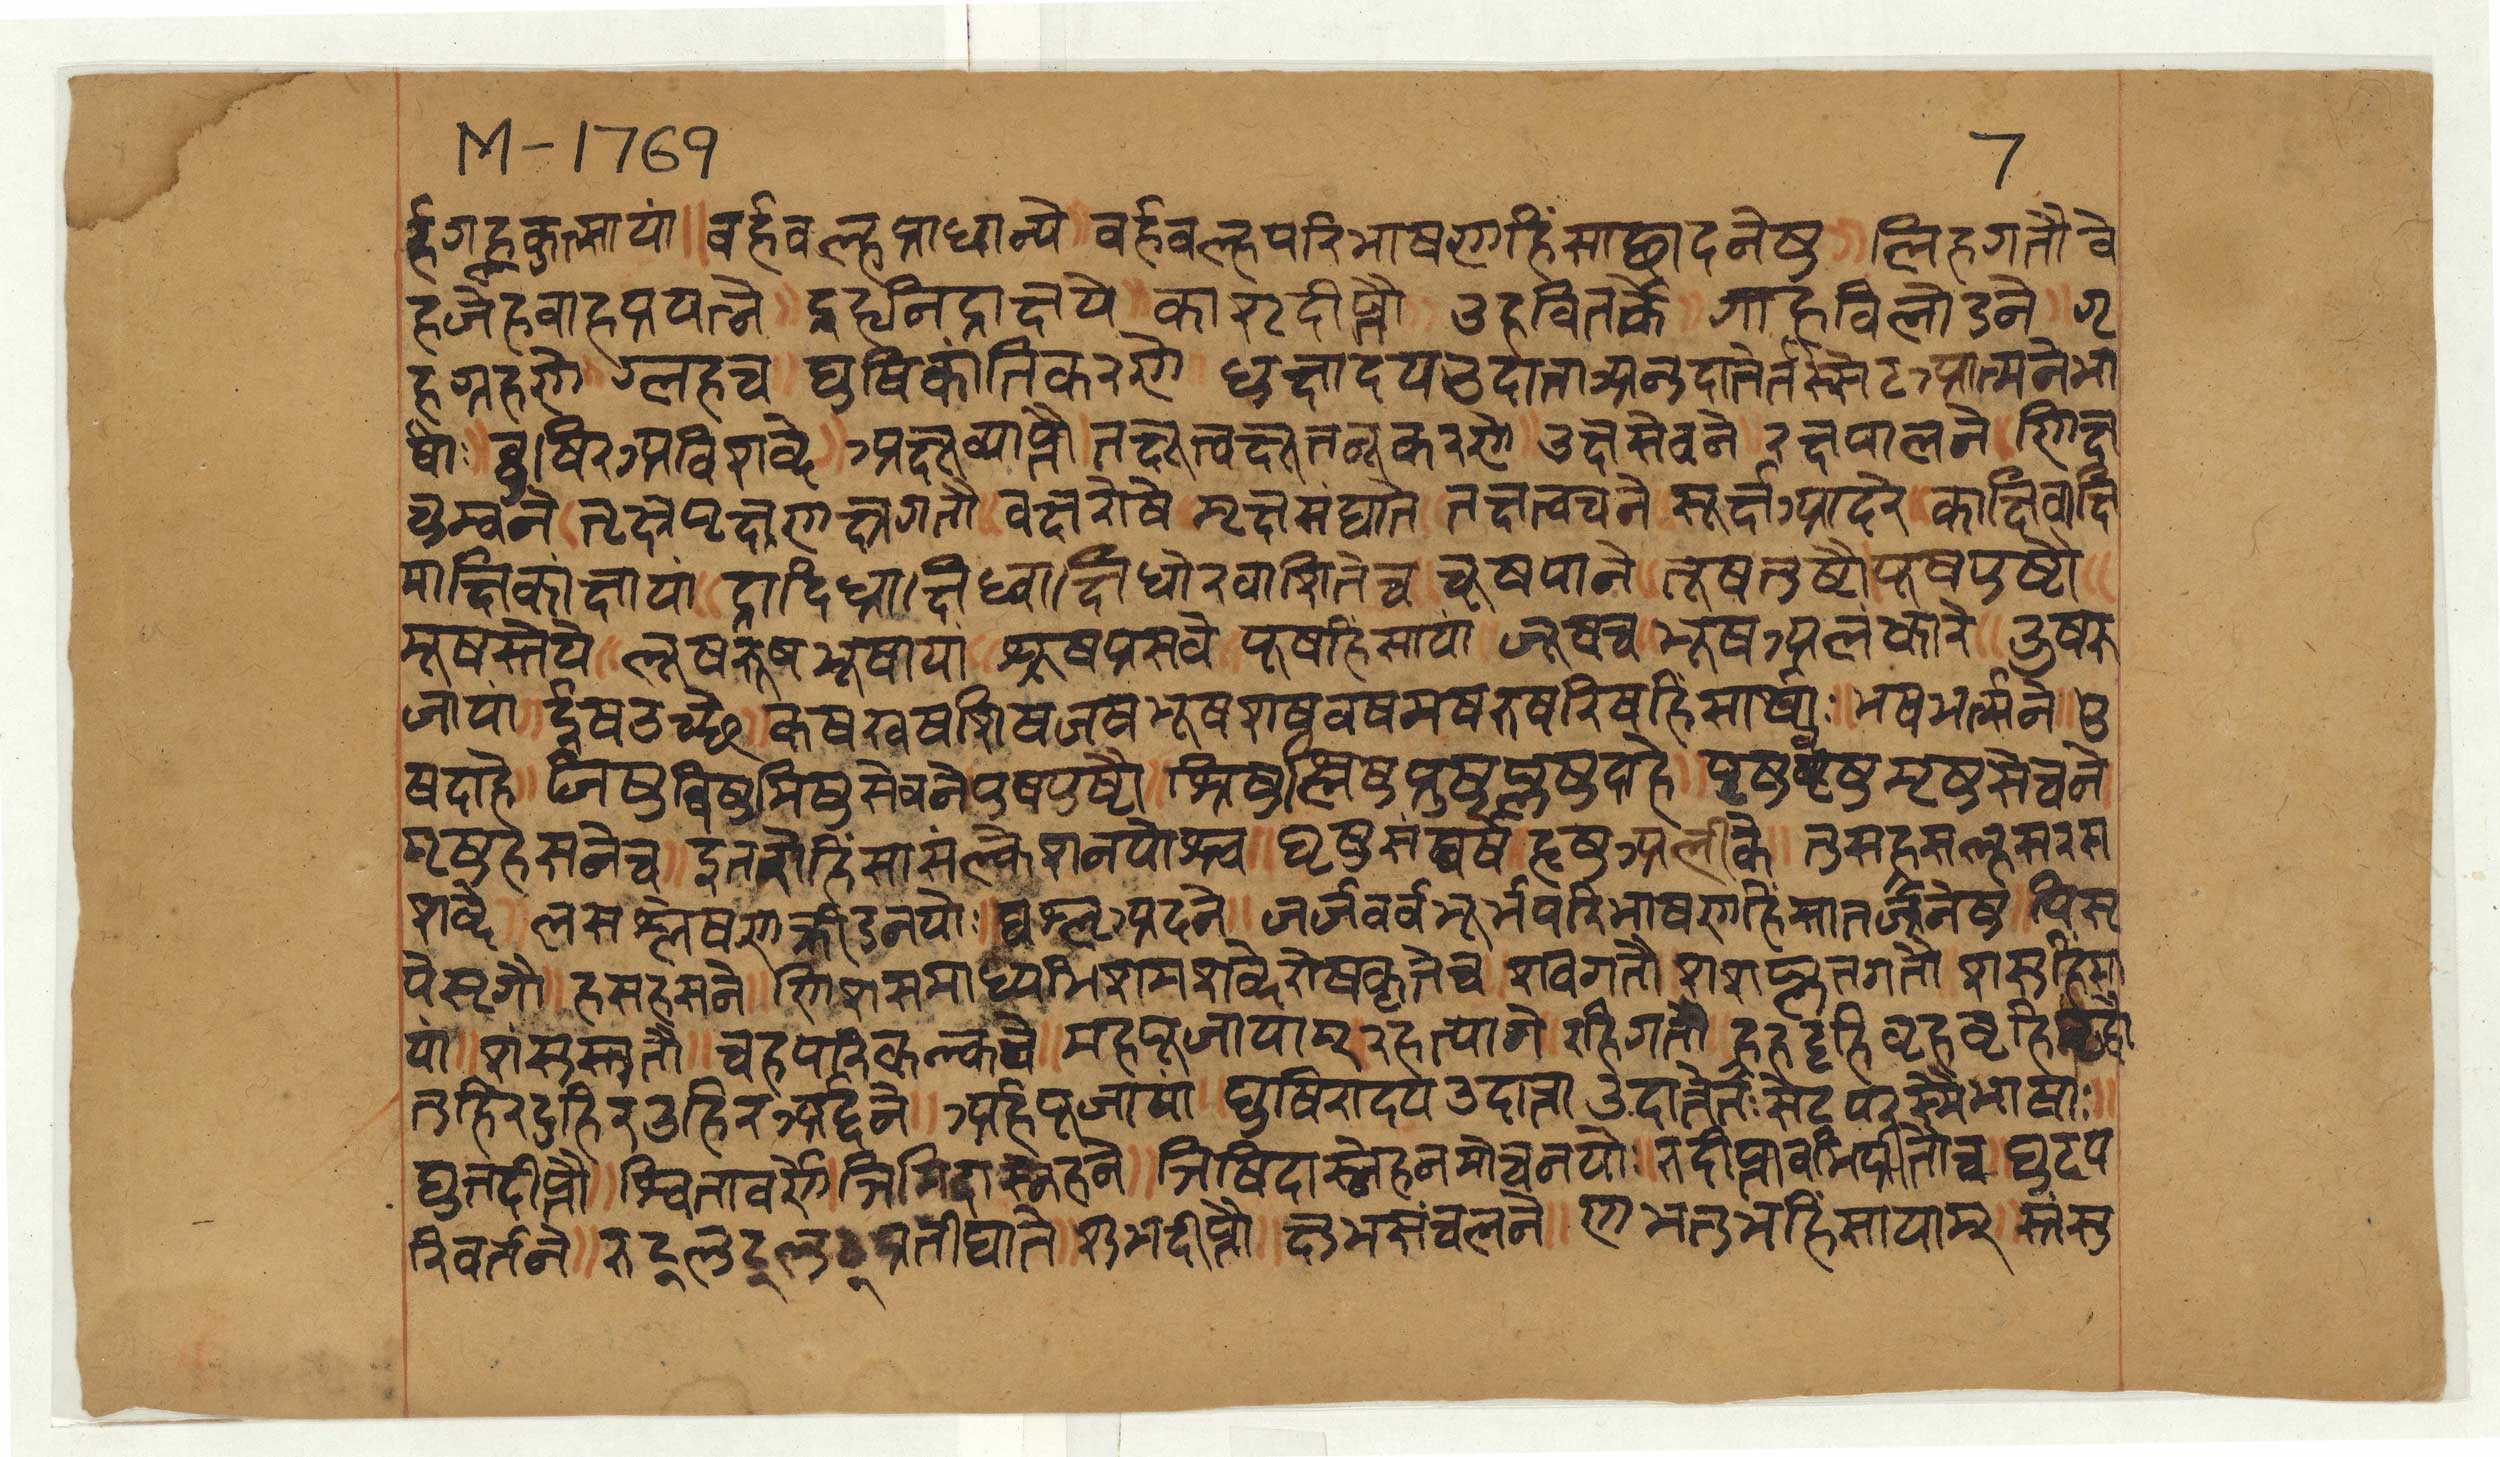 M-1769 7
र्हगर्हकुत्सायां ॥ वर्हवल्हप्राधान्ये ॥ वर्हवल्हपरिभाषणहिंसाछादनेषु ॥ लिहगतौ वे
हृजेहृवाहृप्रयत्ने ॥ द्राहृनिद्राक्षये ॥ काशृदीप्तौ ऊहवितर्के ॥ गाहूविलोडने ॥ गृ
हूग्रहणे ॥ ग्लहच ॥ घुषिकांतिकरणे धुक्षादयउदात्ताअनुदात्तेतस्सेटआत्मनेभा
षाः ॥ घुषिरअविशब्दे ॥ अक्षूव्याप्तौ तक्षूत्वक्षूतनूकरणे ॥ उक्षसेचने ॥ रक्षपालने ॥ णिक्ष
चुम्बने ॥ तृक्षष्टृक्षणक्षगतौ ॥ वक्षरोषे ॥ मृक्षसंघाते ॥ तक्षत्वचने ॥ सूर्क्षआदरे ॥ काक्षिवाक्षि
माक्षिकांक्षायां ॥ द्राक्षिध्राक्षिध्वाक्षिघोरवाशितेच ॥ चूषपाने ॥ तूषतुष्टौ ॥ पूषपुष्टौ ॥
मूषस्तेये ॥ लूषरूषभूषायां ॥ शूषप्रसवे ॥ यूषहिंसायां ॥ जूषच ॥ भूषअलंकारे ॥ ऊषरु
जायां ॥ ईषउञ्छे ॥ कषखषशिषजषझषशषवषमषरुषरिषहिंसार्थाः ॥ भषभर्त्सने ॥ उ
षदाहे ॥ जिषुविषुमिषुसेचने ॥ पुषपुष्टौ ॥ श्रिषुश्लिषुप्रुषुप्लुषुदाहे ॥ पृषुवृषुमृषुसेचने
मृषुहसनेच ॥ इतरौहिंसासंक्लेशनयोश्च ॥ घृषुसंघर्षे हृषुअलीके ॥ तुसह्रसह्लसरस
शब्दे ॥ लसश्लेषणक्रीडनयोः ॥ घस्लृअदने ॥ जर्जचर्चझर्झपरिभाषणहिंसातर्जनेषु ॥ पिसृ
पेसृगतौ ॥ हसेहसने ॥ णिशसमाधौ मिशमशशब्देरोषकृतेच ॥ शवगतौ ॥ शशप्लुतगतौ ॥ शसुहिंसा
यां ॥ शंसुस्तुतौ ॥ चहपरिकल्कने ॥ महपूजायाम् ॥ रहत्यागे ॥ रहिगतौ ॥ दृहदृहिवृहवृहिवृद्धौ
तुहिरदुहिरउहिरअर्दने ॥ अर्हपूजायां ॥ घुषिरादयउदात्ताउदात्तेतः सेटपरस्मैभाषाः ॥
द्युतदीप्तौ ॥ श्वितावर्णे ॥ ञिमिदास्नेहने ॥ ञिष्विदास्नेहनमोचनयोः ॥ रुचदीप्तावभिप्रीतौच ॥ घुटप
रिवर्तने ॥ रुटलुटलुठप्रतीघाते ॥ शुभदीप्तौ ॥ क्षुभसंचलने ॥ णभतुभहिंसायाम् ॥ स्रंसु